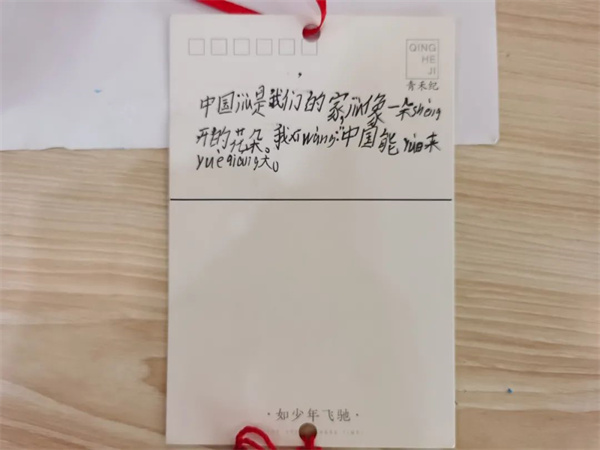 QING
HE
JI
青禾纪
中国jiù是我们的家,jiù像一朵shèng
开的花朵。我xīwàng中国能yuè来
yuèqiáng大。
·如少年飞驰·